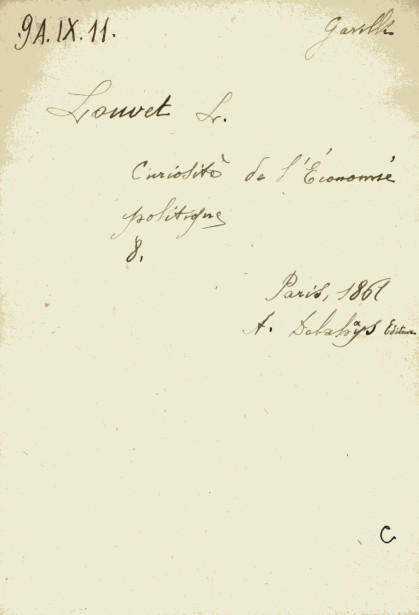 9A.IX.11.
Louvet L.
Curiosité de l'Économie
politique
8.
Paris, 1861
A. Delahays Editeur
C